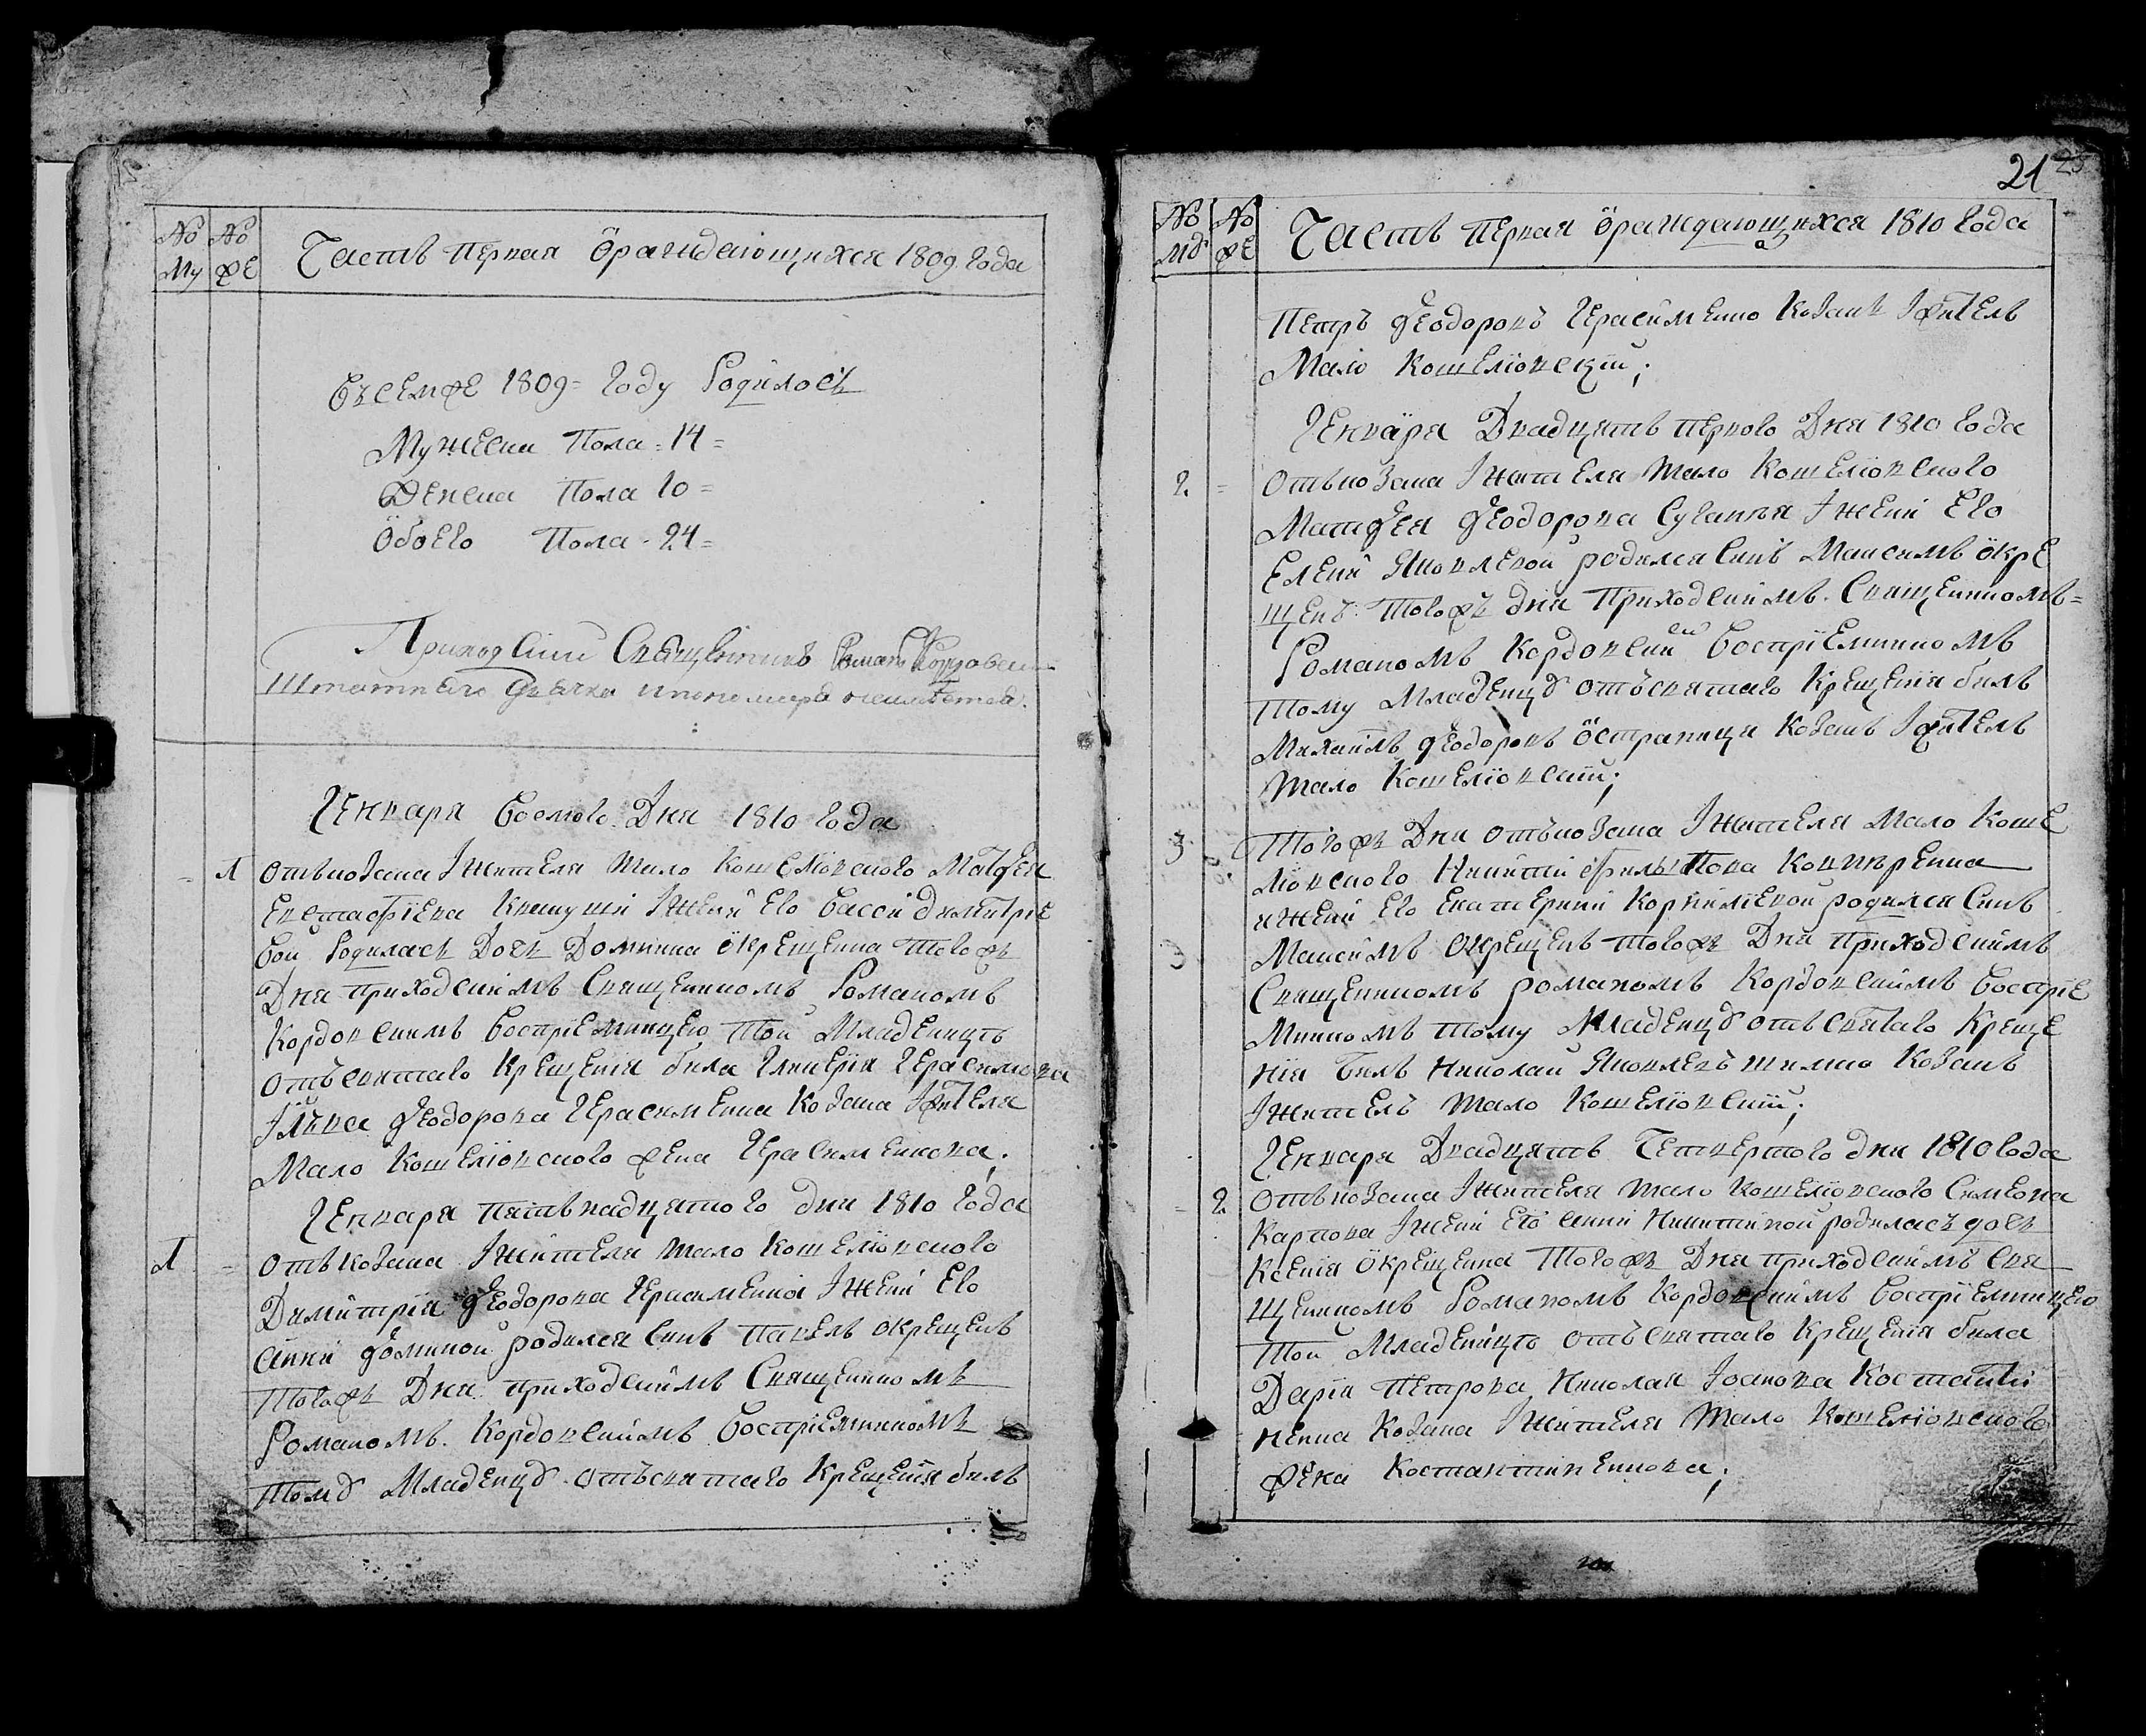 № Му
№ Же
Часть Первая О раждающихся 1809 года
Въ семже 1809= году Родилось
Мужеска Пола = 14 =
Женска Пола 10 =
Обоего Пола - 24 =
Приходский Священникъ Романъ Кордовский
Штатнаго дьячка и пономара
Генваря Восмого Дня 1810 года
- 1 отъ козака и жителя Мало Кошелювского Матфея
Евстафиева и жени Его Васси Димитрие
вой Родилась Дочь Домникиа окрещенна Тогожъ
Дня приходскимъ Священникомъ Романомъ
Кордовскимъ Восприемницею Той Младеницѣ
отъ святаго Крещения била Гликерия Герасимова
Феодорова Герасименка Козака и жителя
Мало Кошелювского жена Герасименкова;
Генваря пятьнадцятого дня 1810 года
1 - отъ козака и жителя Мало Кошелювского
Димитрия Феодорова Герасименка и жени Его
Анни Фоминой родился Синъ Павелъ окрещенъ
Тогожъ Дня приходскимъ Священникомъ
Романомъ Кордовскимъ Восприемникомъ
Тому Младенцу отъ святаго Крещения билъ
21
№ Му
№ Же
Часть Первая О раждающихся 1810 года
Петръ Феодоровъ Герасименко Козакъ и житель
Мало Кошелювский;
Генваря Двадцять первого Дня 1810 года
2 - отъ козака и жителя Мало Кошелювского
Матфея Феодорова и жени Его
Елени Яковлевой родился Синъ Максимъ окре
щенъ Тогожъ дня Приходскимъ Священникомъ=
Романомъ Кордовским Восприемникомъ
Тому Младенцу отъ святаго Крещения билъ
Михаилъ Феодоровъ Остраница Козакъ и житель
Мало Кошелювский;
3 Тогожъ Дня отъ козака и жителя Мало Коше
лювского Никити Филипова
и жени Его Екатерини Корнилиевой родился Синъ
Максимъ окрещенъ Тогожъ Дня Приходскимъ
Священникомъ Романомъ Кордовскимъ Восприе
мникомъ тому Младенцу отъ святаго Креще
ния Билъ Николай Яковлевъ Козакъ
и житель Мало Кошелювский;
Генваря Двадцять Четвертого дня 1810 года
- 2 отъ козака и жителя Мало Кошелювского Симеона
Карпова и жени Его Никитиной родилась дочь
Ксения окрещенна Тогожъ Дня приходскимъ Свя
щенникомъ Романомъ Кордовскимъ Восприемницею
Той Младеницѣ отъ святаго Крещения била
Дария Петрова Николая Иоанова Костанти
ненка Козака и жителя Мало Кошелювского
жена Костантиненкова;